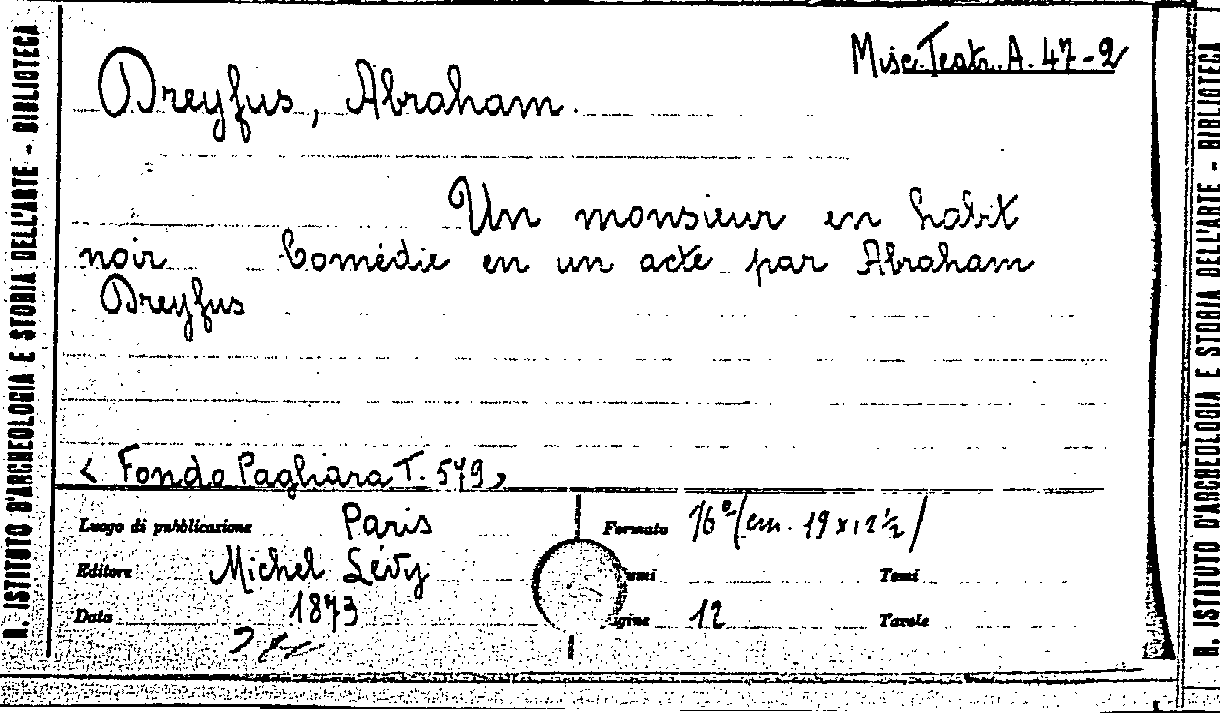 Misc. Teatr. A. 47-2
Dreyfus, Abraham.
Un monsieur en habit
noir Comédie en un acte par Abraham
Dreyfus
< Fondo Pagliara T. 579>
Luogo di pubblicazione Paris
Formato 16° (cm. 19 x 12 ½)
Editore Michel Lévy
umi Tomi
Data 1873
gine 12 Tavole
R. ISTITUTO D'ARCHEOLOGIA E STORIA DELL'ARTE - BIBLIOTECA
R. ISTITUTO D'ARCHEOLOGIA E STORIA DELL'ARTE - BIBLIOTECA